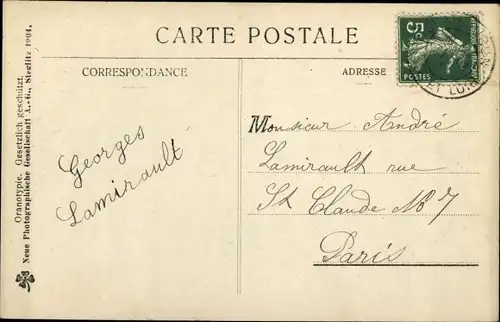 CARTE POSTALE
CORRESPONDANCE
ADRESSE
5c
POSTES
ET LOIR
Georges
Lamirault
Monsieur André
Lamirault rue
St Claude No 7
Paris
Oranotypie. Gesetzlich geschützt.
Neue Photographische Gesellschaft A.-G., Steglitz 1904.